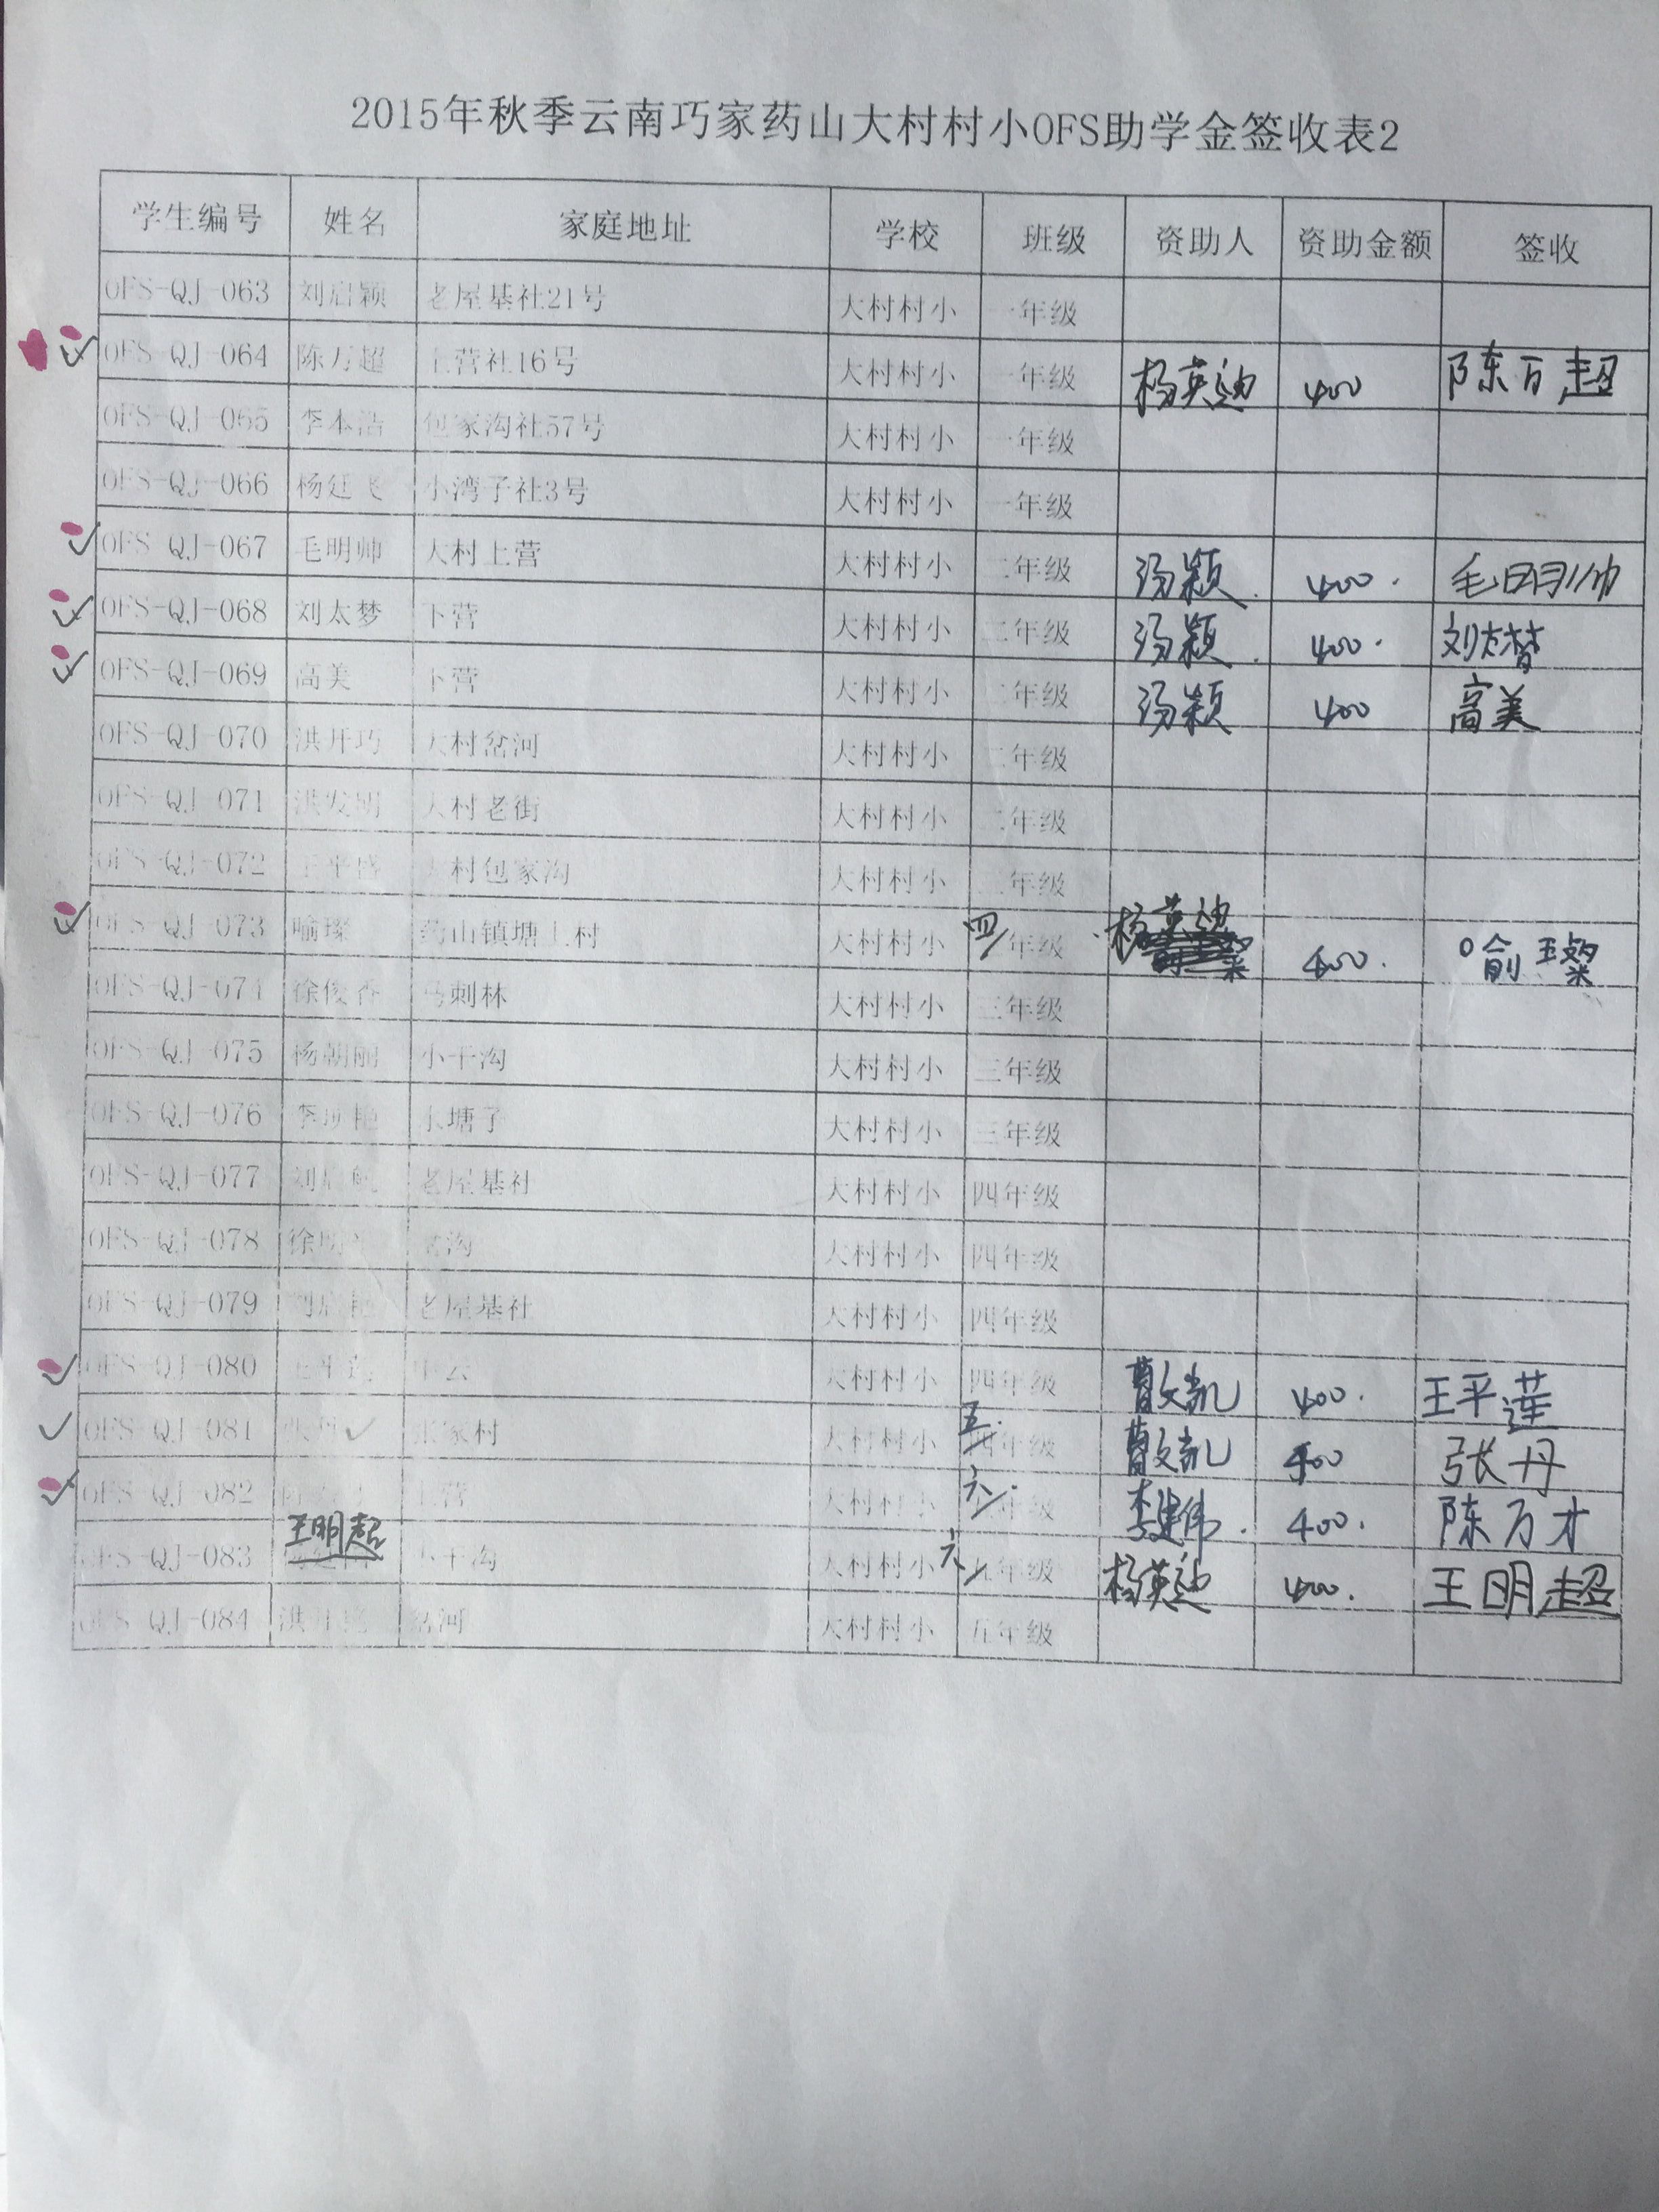 2015年秋季云南巧家药山大村村小OFS助学金签收表2
学生编号 姓名 家庭地址 学校 班级 资助人 资助金额 签收
OFS-QJ-063 刘启颖 老屋基社21号 大村村小 一年级
OFS-QJ-064 陈万超 上营社16号 大村村小 一年级 杨英迪 400 陈万超
OFS-QJ-065 李本浩 包家沟社57号 大村村小 一年级
OFS-QJ-066 杨廷飞 小湾子社3号 大村村小 一年级
OFS-QJ-067 毛明帅 大村上营 大村村小 二年级 汤颖. 400. 毛明帅
OFS-QJ-068 刘太梦 下营 大村村小 二年级 汤颖. 400. 刘太梦
OFS-QJ-069 高美 下营 大村村小 二年级 汤颖 400 高美
OFS-QJ-070 洪开巧 大村岔河 大村村小 二年级
OFS-QJ-071 洪发明 大村老街 大村村小 二年级
OFS-QJ-072 王平盛 大村包家沟 大村村小 年级
OFS-QJ-073 喻璨 药山镇塘上村 大村村小 四年级 杨英迪 400. 喻璨
OFS-QJ-074 徐俊香 马刺林 大村村小 三年级
OFS-QJ-075 杨朝丽 小干沟 大村村小 三年级
OFS-QJ-076 水塘子 大村村小 三年级
OFS-QJ-077 老屋基社 大村村小 四年级
OFS-QJ-078 大村村小 四年级
OFS-QJ-079 老屋基社 大村村小 四年级
OFS-QJ-080 王平莲 大村村小 四年级 曹文凯 400. 王平莲
OFS-QJ-081 张丹 张家村 大村村小 五 四年级 曹文凯 400 张丹
OFS-QJ-082 上营 大村村小 六 年级 李建伟. 400. 陈万才
OFS-QJ-083 王明超 小干沟 大村村小 六 五年级 杨英迪 400. 王明超
OFS-QJ-084 岔河 大村村小 五年级